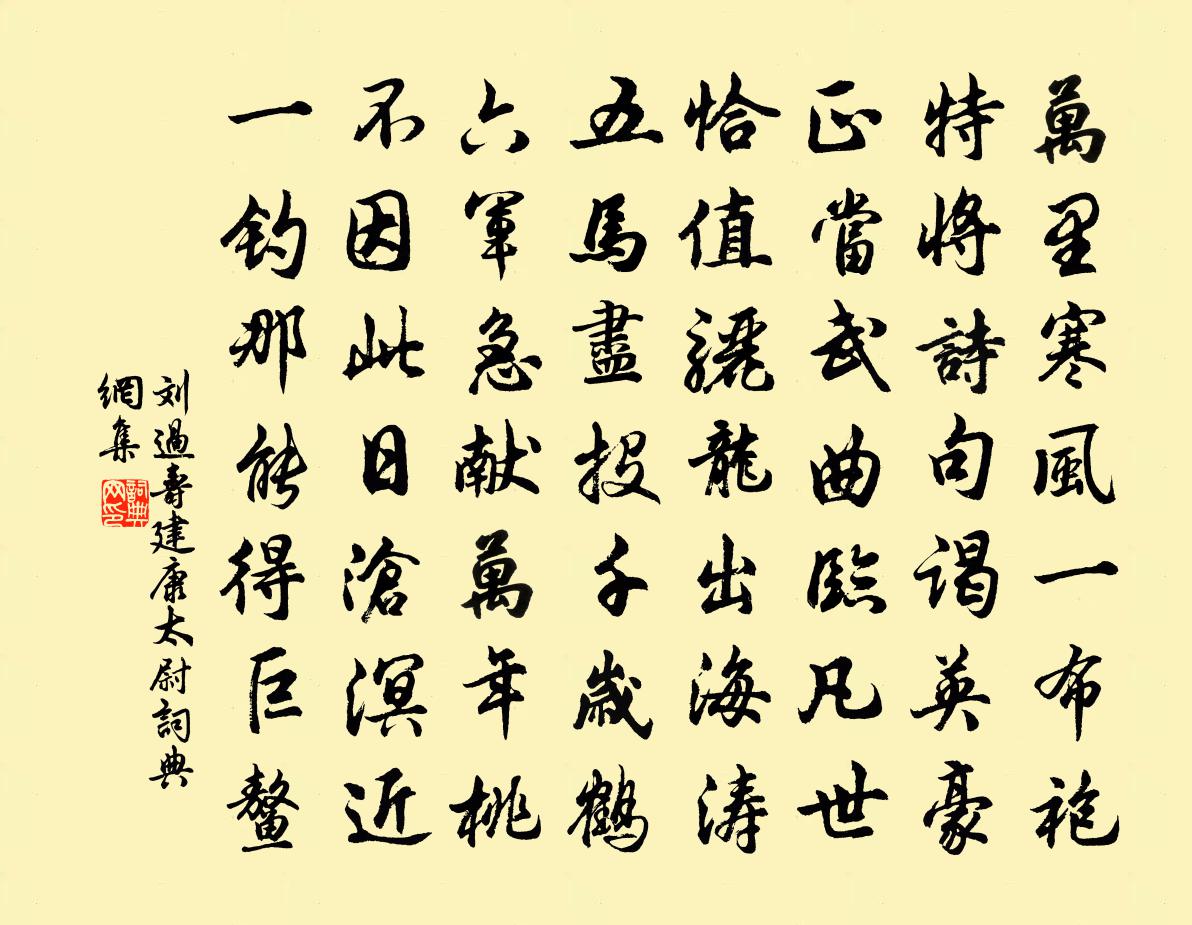 萬里寒風一布袍
特將詩句謁英豪
正當武曲臨凡世
恰值驪龍出海濤
五馬盡投千歲鶴
六軍急献萬年桃
不因此日滄溟近
一釣那能得巨鰲
刘過壽建康太尉詞典
網集
詞典
网印